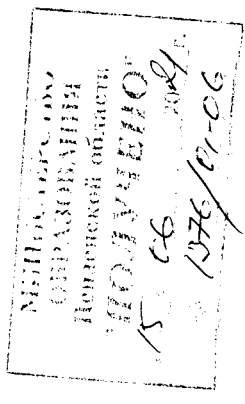 МИНИСТЕРСТВО
ОБРАЗОВАНИЯ
Пензенской области
"ПОЛУЧЕНО"
15 06 2021 г.
1376/01-06